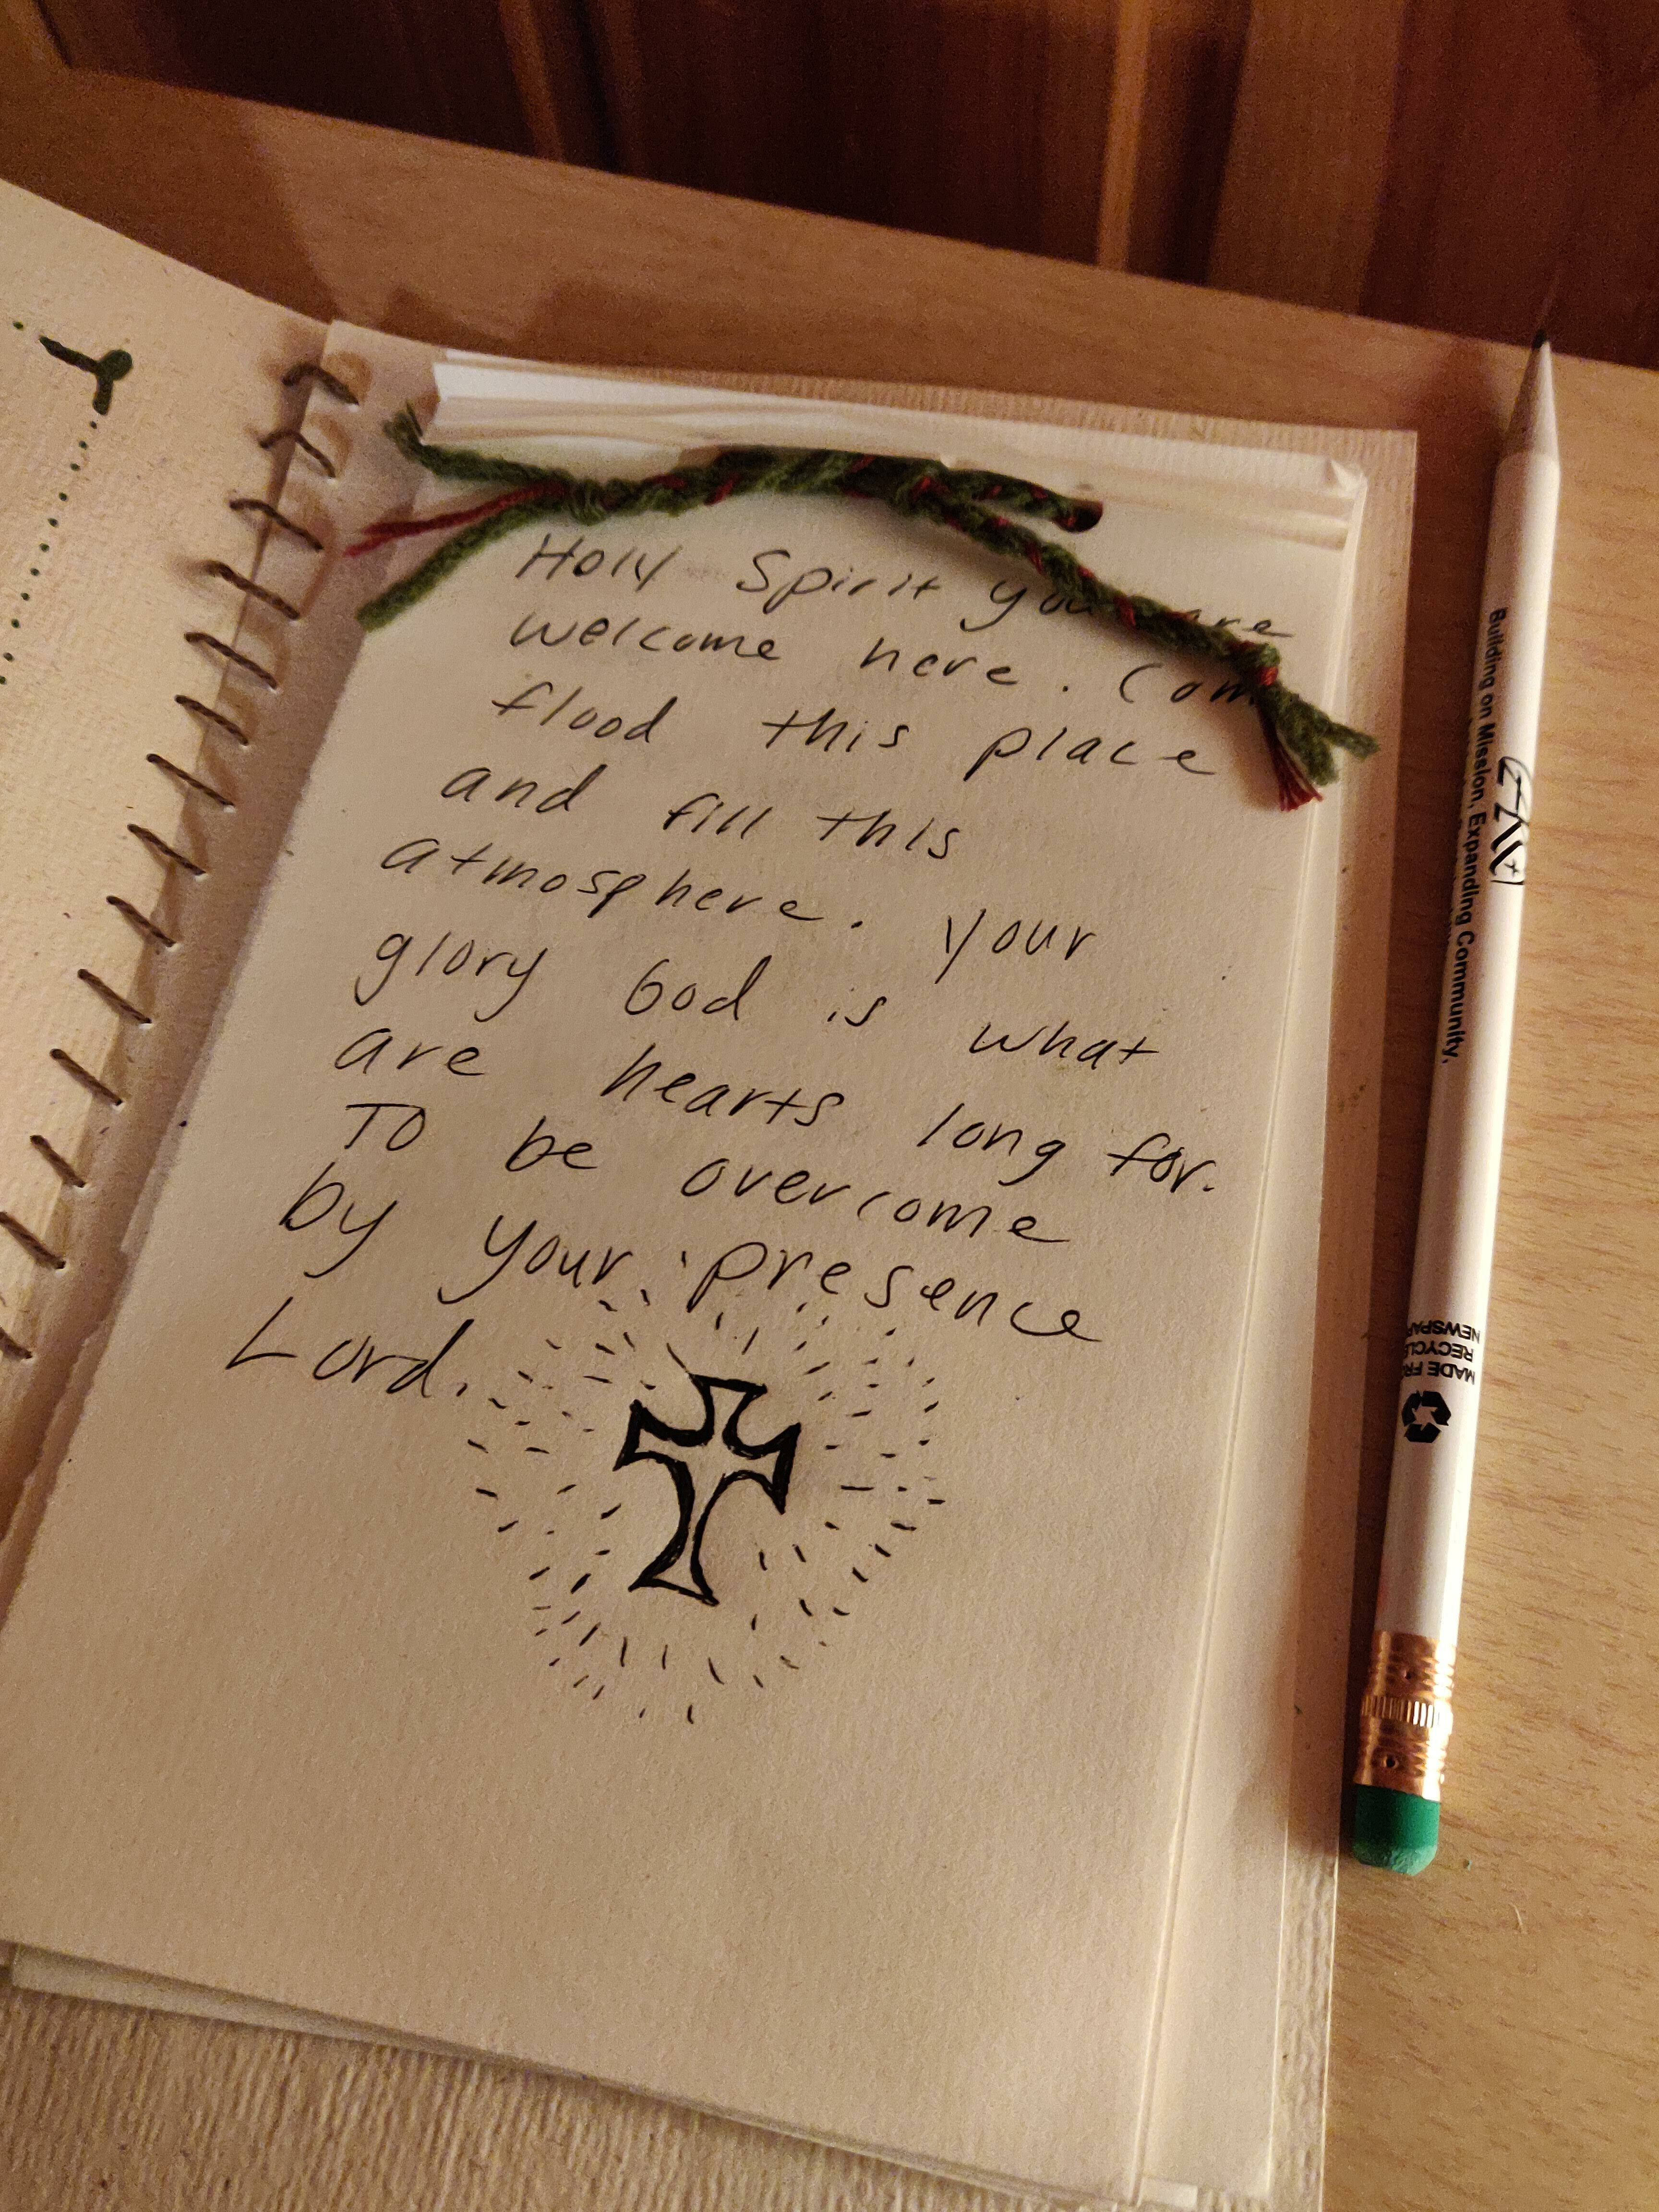 Holy Spirit you are
welcome here. Com
flood this place
and fill this
atmosphere. Your
glory God is what
are hearts long for.
To be overcome
by your presence
Lord.
Building on Mission, Expanding Community,
MADE FR
RECYCLE
NEWSPAP